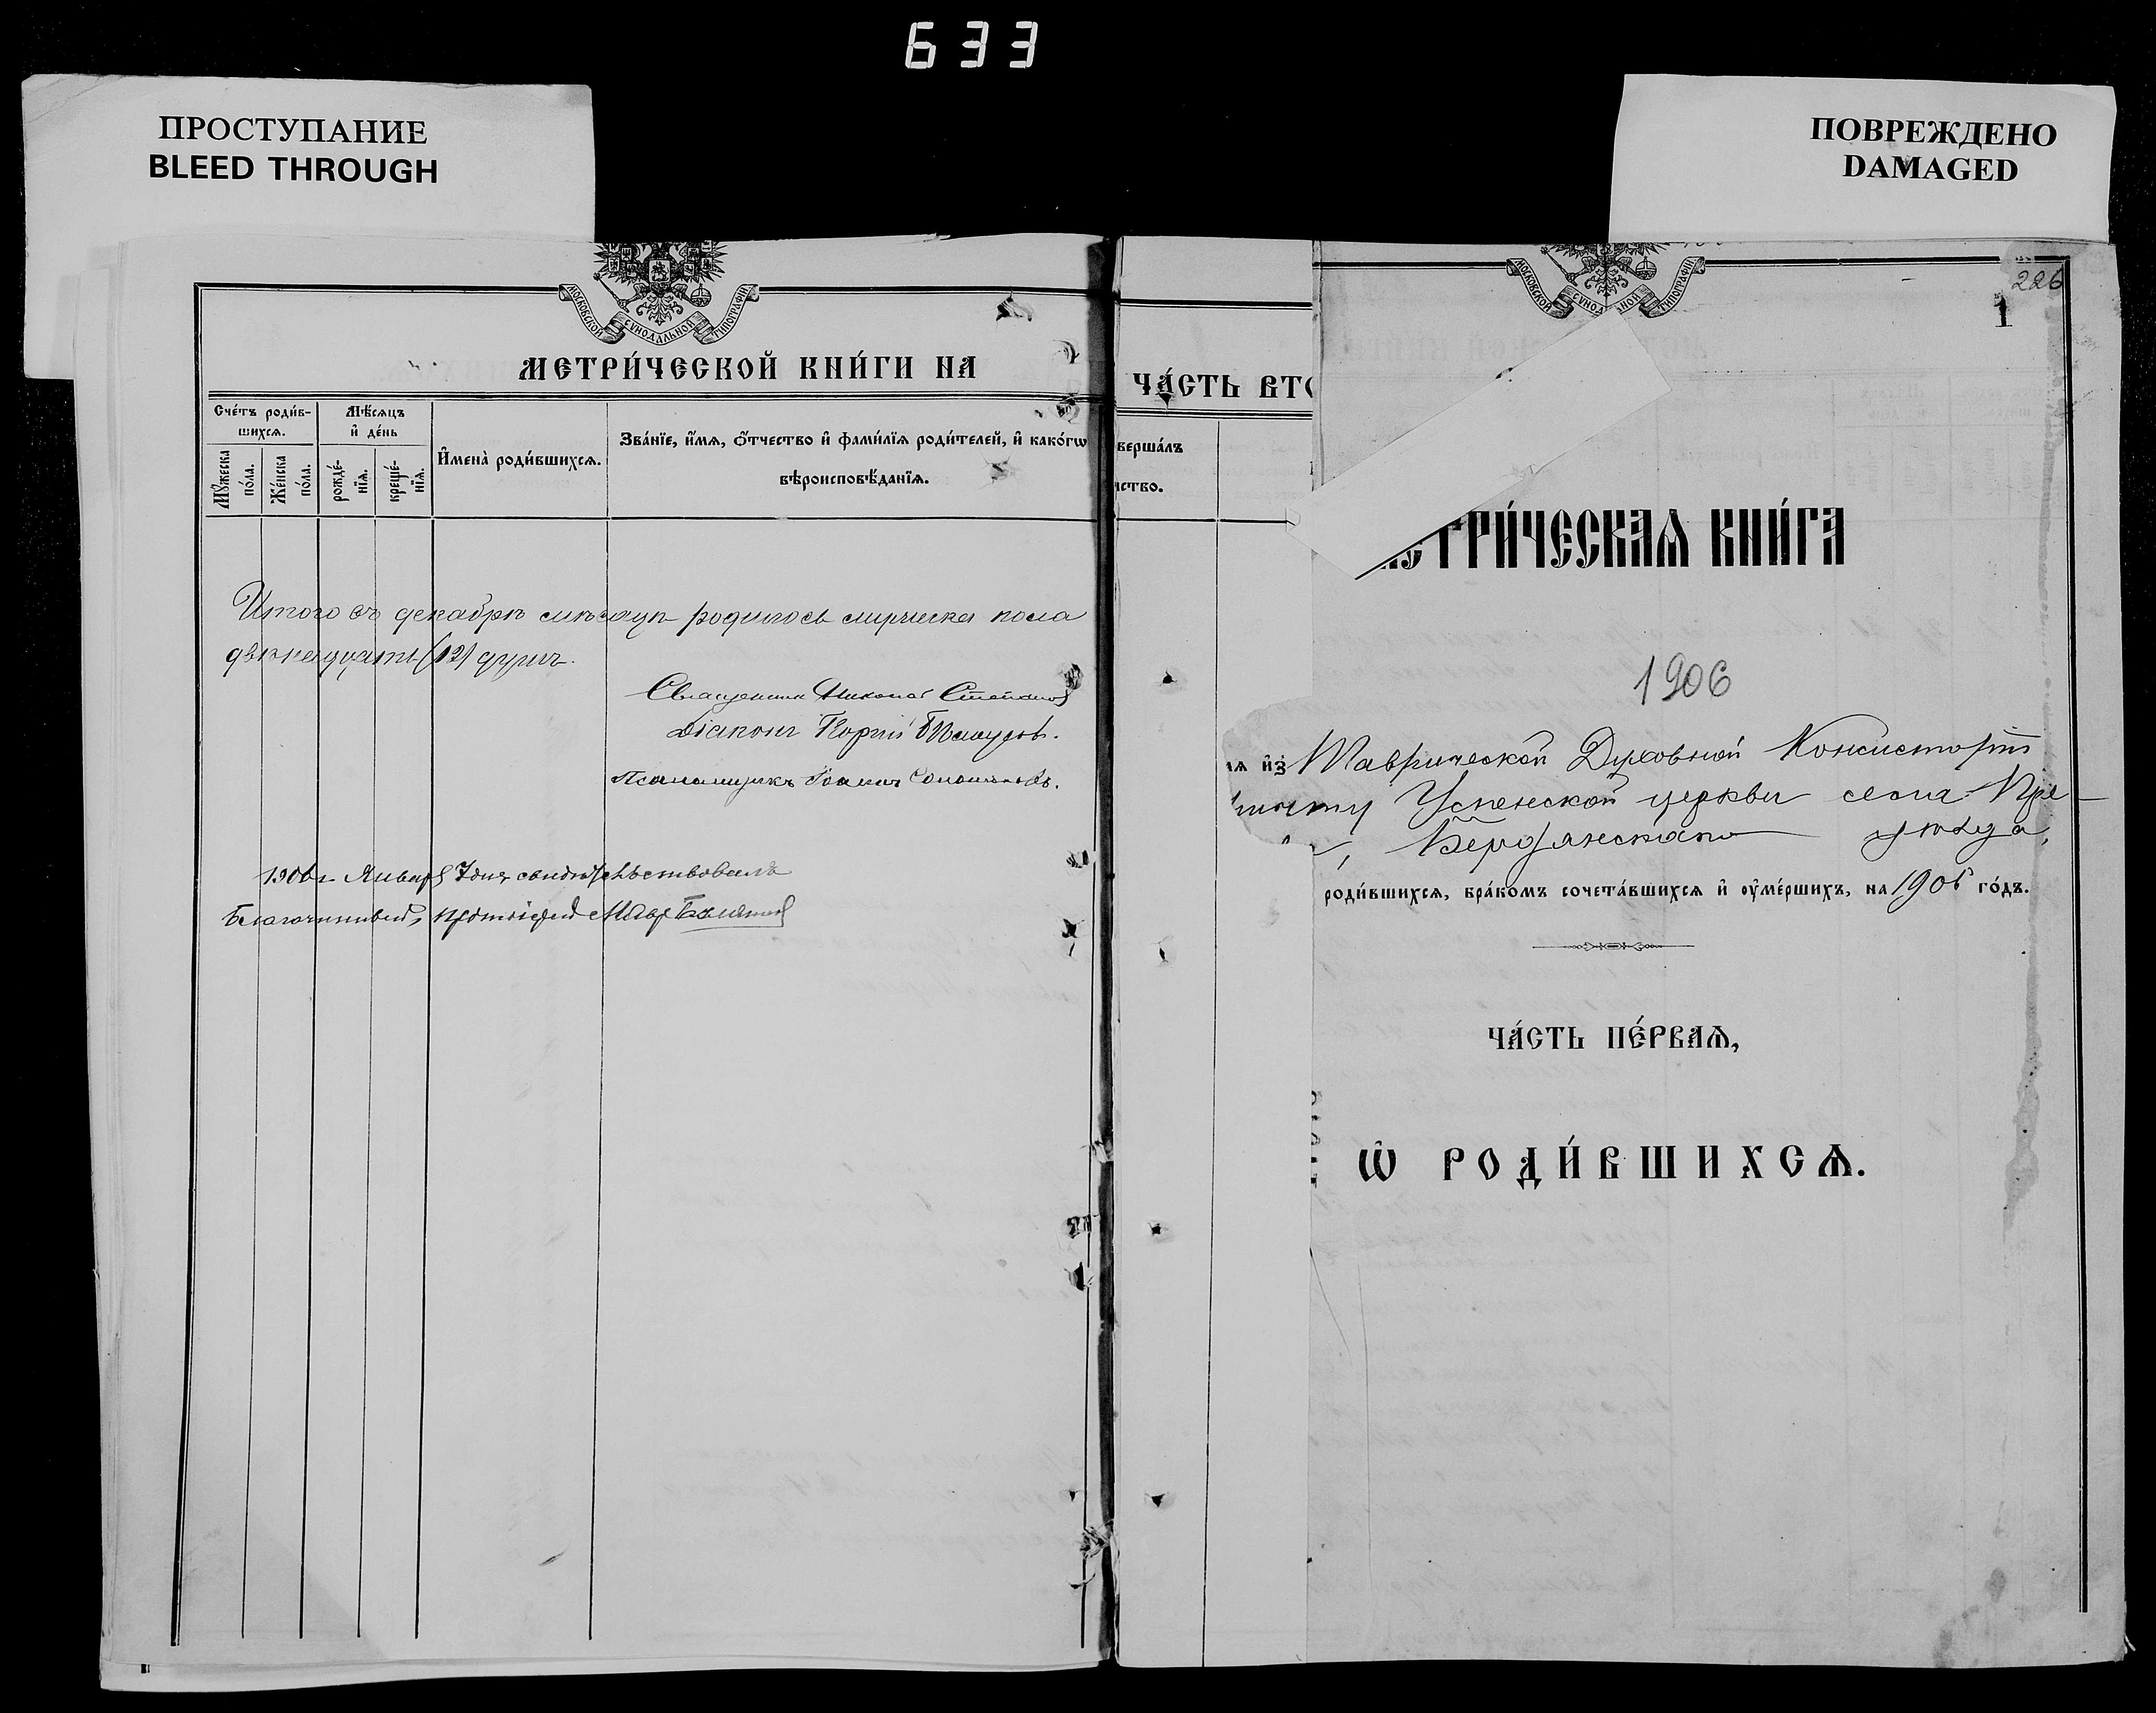 633
ПРОСТУПАНИЕ
BLEED THROUGH
ПОВРЕЖДЕНО
DAMAGED
МОСКОВСКОЙ СѴНОДАЛЬНОЙ ТИПОГРАФІИ
МЕТРИ́ЧЕСКОЙ КНИ́ГИ НА
Сче́тъ роди́в-
шихсѧ.
Мѣ́сѧцъ
и҆ де́нь
И҆мена̀ роди́вшихсѧ.
Зва́нїе, и҆́мѧ, ѻ҆́тчество и҆ фами́лїѧ роди́телей, и҆ како́гѡ
вѣроисповѣ́данїѧ.
Мꙋ́жеска
по́ла.
Же́нска
по́ла.
рожде́-
нїѧ.
креще́-
нїѧ.
Итого въ декабрѣ мѣсяцѣ родилось мужеска пола
двѣнадцать (12) душъ.
Священникъ Николай
Діаконъ
Псаломщикъ Іоаннъ
1906 г. Января 7 дня свидѣтельствовалъ
Благочинный, протоіерей
ЧА́СТЬ ВТО
вершалъ
нство.
МОСКОВСКОЙ СѴНОД ЬНОЙ ТИПОГРАФІИ
226
1
ТРИ́ЧЕСКАѦ КНИ́ГА
1906
и҆з̾ Таврической Духовной Консисторіи
Успенской церкви села Пре
Бердянскаго уѣзда,
роди́вшихсѧ, бра́комъ сочета́вшихсѧ и҆ ᲂу҆ме́ршихъ, на 1906 го́дъ.
ЧА́СТЬ ПЕ́РВАѦ,
Ѽ РОДИ́ВШИХСѦ.